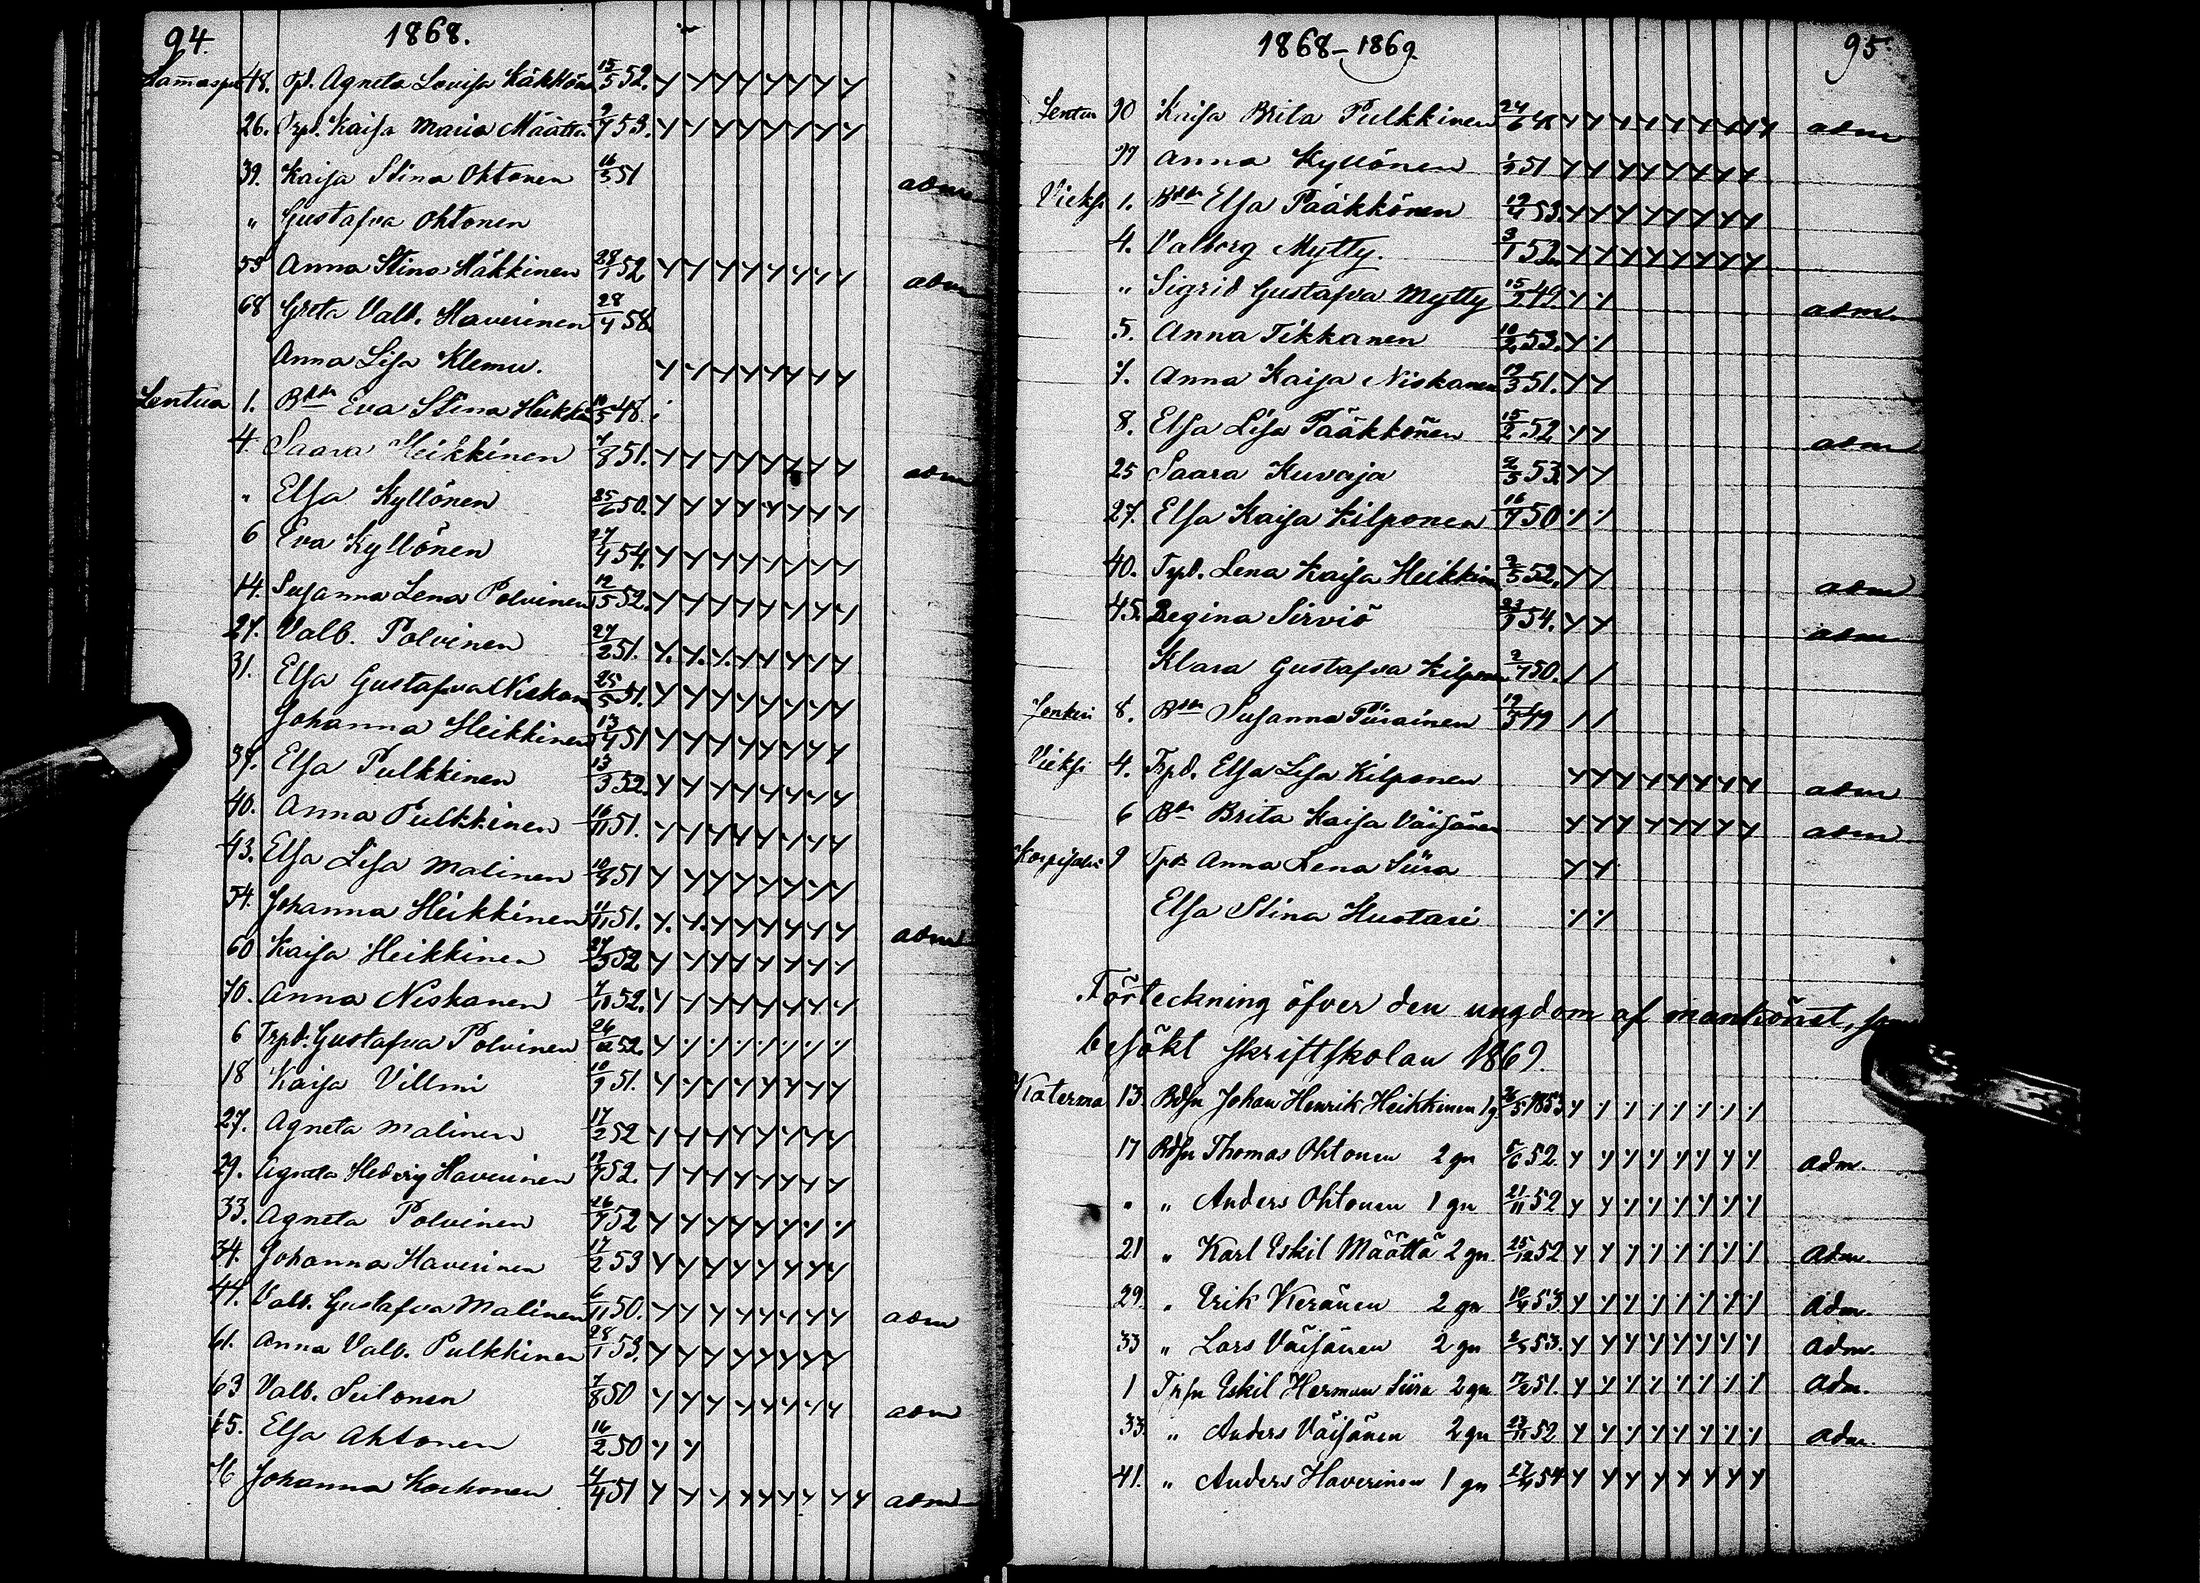 94.
1868.
48. Tpd. Agneta Lovisa Käkkön 15/5 52.
26. Trpd. Kaisa Maria Määtta 2/7 53.
39. Kaisa Stina Ohtonen 16/5 51 adm
" Gustafva Ohtonen
55 Anna Stina Häkkinen 28/1 52 adm
68 Greta Valb. Haverinen 28/4 58
Anna Lisa Klemu.
Lentua 1. Bdtr Eva Stina Heikki 10/5 48.
4. Saara Heikkinen 7/8 51. adm
" Elsa Kyllönen 25/6 50.
6 Eva Kyllönen 27/4 54.
14. Susanna Lena Polvinen 12/5 52.
27. Valb. Polvinen 27/2 51.
31. Elsa Gustafva Niskan 25/5 51.
Johanna Heikkinen 13/4 51
37. Elsa Pulkkinen 13/3 52.
40. Anna Pulkkinen 16/11 51.
43. Elsa Lisa Malinen 10/8 51
54. Johanna Heikkinen 11/11 51. adm
60 Kaisa Heikkinen 27/3 52
70. Anna Niskanen 7/10 52.
6 Trpd. Gustafva Polvinen 26/12 52.
18 Kaisa Villmi 10/9 51.
27. Agneta Malinen 17/2 52
29. Agneta Hedvig Haverinen 19/7 52.
33. Agneta Polvinen 26/7 52
34. Johanna Haverinen 17/2 53
44. Valb. Gustafva Malinen 6/11 50. adm
61. Anna Valb. Pulkkinen 28/1 53.
63 Valb. Seilonen 7/8 50 adm
65. Elsa Ahtonen 16/2 50
76 Johanna Korhonen 4/4 51 adm
1868–1869.
95.
Lentua 90 Kaisa Brita Pulkkinen 24/6 48 adm
97 Anna Kyllönen 1/9 51
Vieksi 1. Bdtr Elsa Pääkkönen 19/4 53.
4. Valborg Mytty. 3/1 52.
" Sigrid Gustafva Mytty 15/2 49 adm.
5. Anna Tikkanen 10/2 53.
7. Anna Kaisa Niskanen 19/3 51.
8. Elsa Lisa Pääkkönen 15/2 52 adm
25 Saara Kuvaja 2/5 53
27. Elsa Kaisa Kilponen 16/7 50
40. Tpd. Lena Kaisa Heikkin 2/5 52. adm
45. Regina Sirviö 23/3 54. adm
Klara Gustafva Kilpon 2/7 50.
Jonkeri 8. Bdtr Susanna Piirainen 19/3 49
Vieksi 4. Trpd. Elsa Lisa Kilponen adm
6 Bdr Brita Kaisa Väisänen adm
9 Tpdr Anna Lena Siira
Elsa Stina Huotari
Förteckning öfver den ungdom af mankönet, som
besökt skriftskolan 1869.
Katerma 13. Bdsn Johan Henrik Heikkinen 1 g 26/5 1853
17 Bdsn Thomas Ohtonen 2 gn 5/6 52 adm.
" " Anders Ohtonen 1 gn 21/11 52
21 " Karl Eskil Määttä 2 gn 25/12 52 adm.
29. " Erik Keränen 2 gn 10/4 53. adm.
33 " Lars Väisänen 2 gn 2/5 53. adm.
1 Trsn Eskil Herman Siira 2 gn 51. adm.
33. " Anders Väisänen 2 gn 23/11 52 adm.
41. " Anders Haverinen 1 gn 54